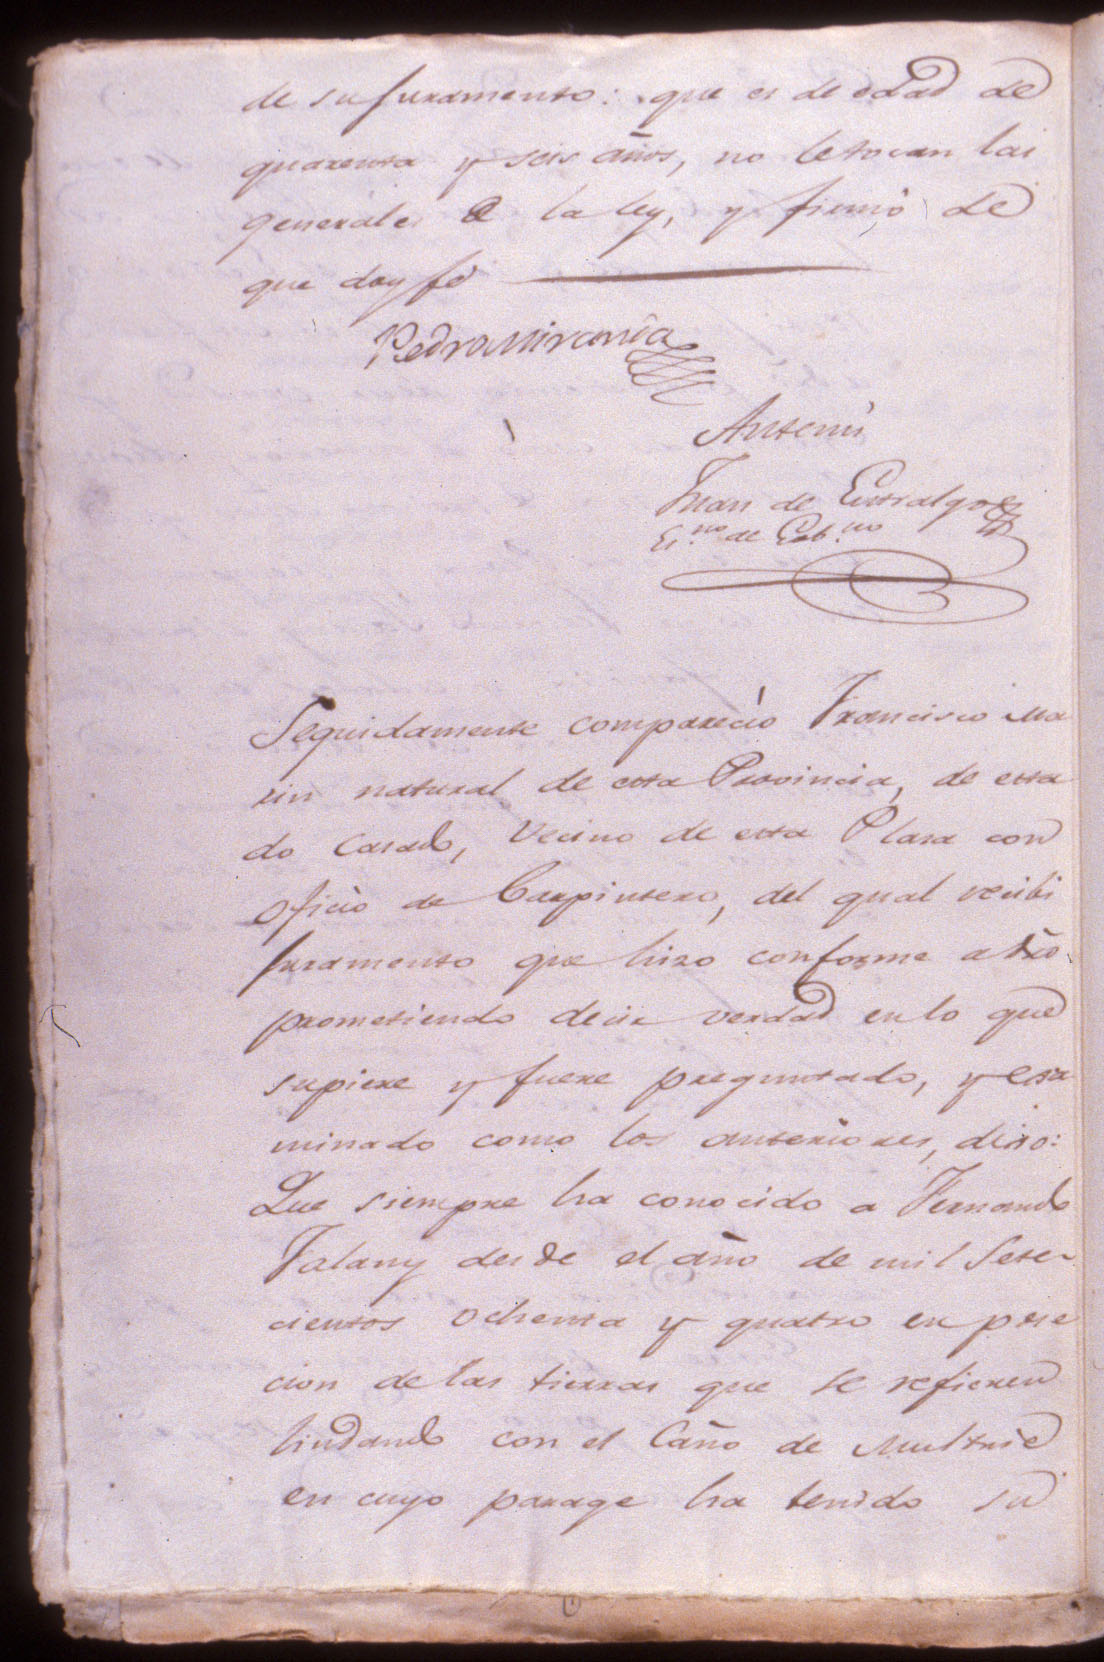 de su juramento: que es de edad de
quarenta y seis años, no le tocan las
generales de la ley, y firmó de
que doy fé
Pedro Miranda
Antemi
Juan de Entralgo
Es.no de Gob.no
Seguidamente comparecio Francisco Ma
rin natural de esta Provincia, de esta
do casado, Vecino de esta Plasa con
oficio de Carpintero, del qual recibi
juramento que hizo conforme a dro
prometiendo decir verdad en lo que
supiere y fuere preguntado, y exa
minado como los anteriores, dixo:
Que siempre ha conocido a Fernando
Falany desde el año de mil Sete-
cientos ochenta y quatro en pose
cion de las tierras que se refieren
lindando con el Caño de Multrie
en cuyo parage ha tenido su